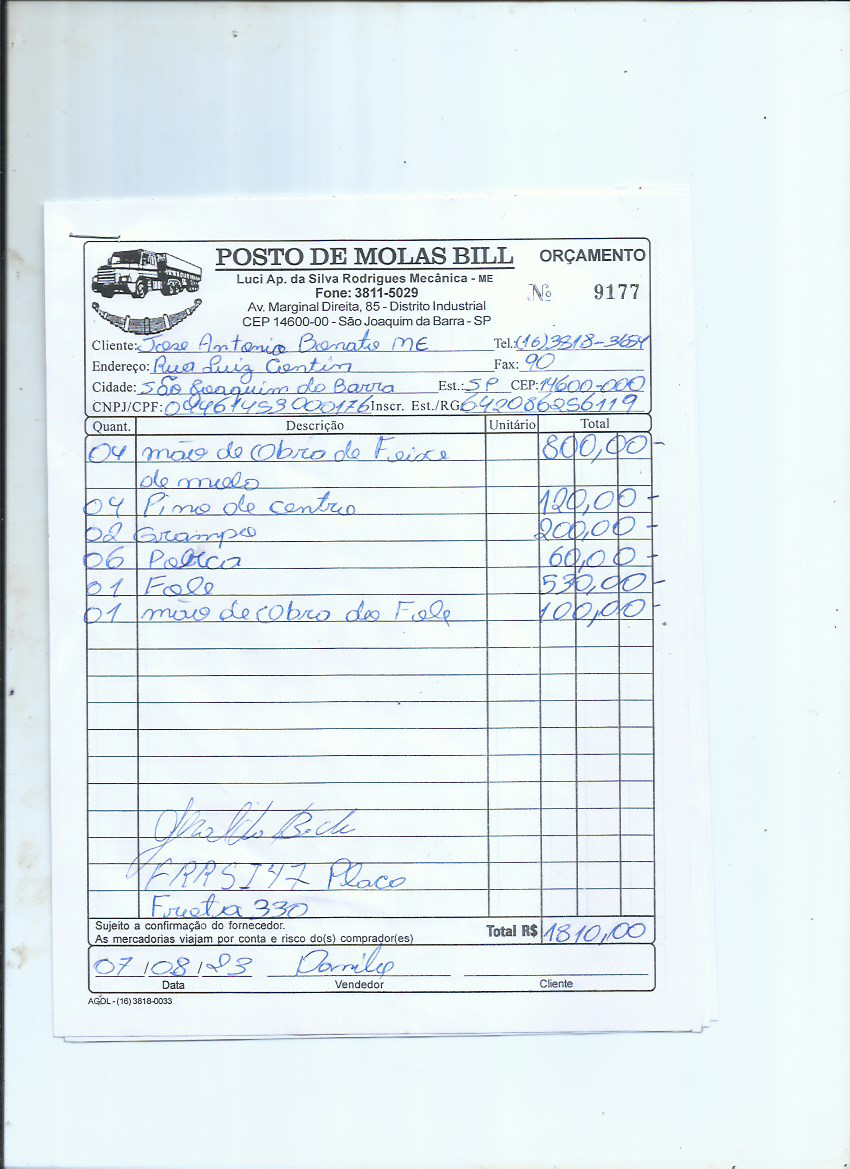 POSTO DE MOLAS BILL
ORÇAMENTO
Luci Ap. da Silva Rodrigues Mecânica - ME
Fone: 3811-5029
Nº 9177
Av. Marginal Direita, 85 - Distrito Industrial
CEP 14600-00 - São Joaquim da Barra - SP
Cliente: Jose Antonio Bonato ME Tel.: (16)3818-3654
Endereço: Rua Luiz Gentin Fax: 90
Cidade: São Joaquim da Barra Est.: SP CEP: 14600-000
CNPJ/CPF: 04461453000176 Inscr. Est./RG 642086256119
Quant. Descrição Unitário Total
04 mão de Obra de Feixe 800,00 -
de molo
04 Pino de centro 120,00 -
02 Grampo 200,00 -
06 Porca 60,00 -
01 Fole 530,00 -
01 mão de Obra do Fole 100,00 -
Placa
Frota 330
Sujeito a confirmação do fornecedor.
As mercadorias viajam por conta e risco do(s) comprador(es)
Total R$ 1810,00
07/08/23 Danilo
Data Vendedor Cliente
AGOL - (16) 3818-0033